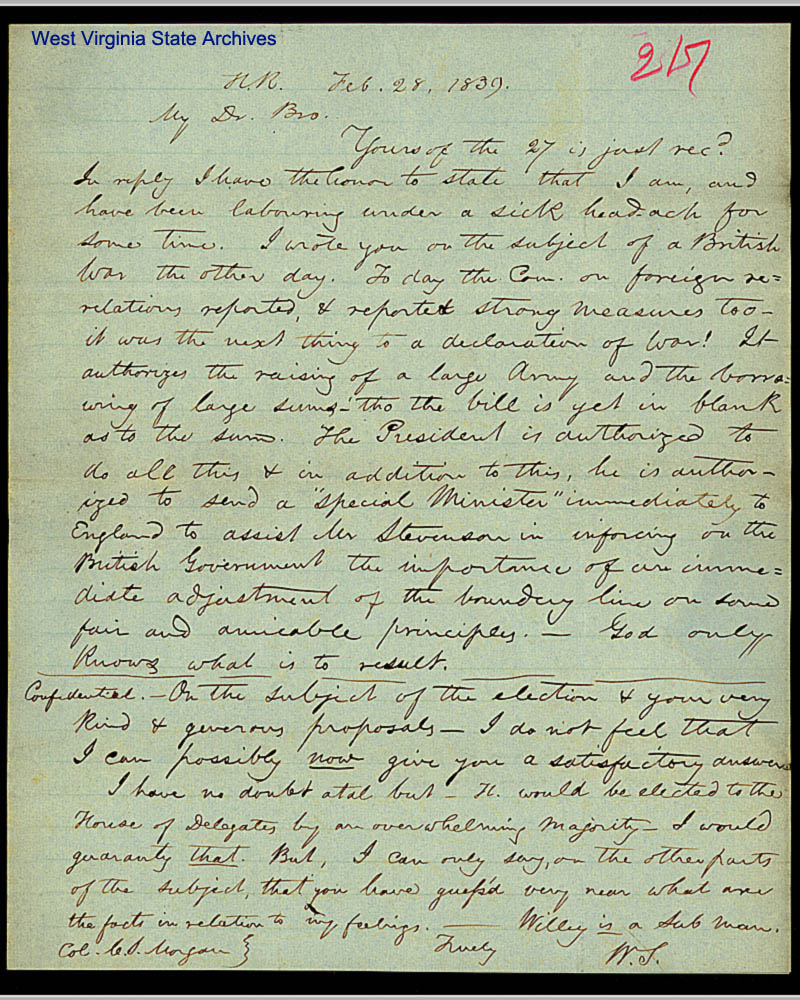 West Virginia State Archives
217
H.R. Feb. 28, 1839.
My Dr. Bro.
Yours of the 27 is just recd.
In reply I have the honor to state that I am, and
have been labouring under a sick head-ach for
some time. I wrote you on the subject of a British
War the other day. To day the Com. on foreign re=
relations reported, & reported strong measures too-
it was the next thing to a declaration of War! It
authorizes the raising of a large Army and the borro=
wing of large sums- tho the bill is yet in blank
as to the sum. The President is authorized to
do all this & in addition to this, he is author-
ized to send a "special Minister" immediately to
England to assist Mr Stevenson in inforcing on the
British Government the importance of an imme=
diate adjustment of the boundery line on some
fair and amicable principles. — God only
knows what is to result.
Confidential. - On the subject of the election & your very
kind & generous proposals - I do not feel that
I can possibly now give you a satisfactory answer
I have no doubt atal but - H. would be elected to the
House of Delegates by an overwhelming majority - I would
guaranty that. But, I can only say, on the other parts
of the subject, that you have guess'd very near what are
the facts in relation to my feelings. — Willey is a Sub man.
Col. C.S. Morgan } Truely W.S.